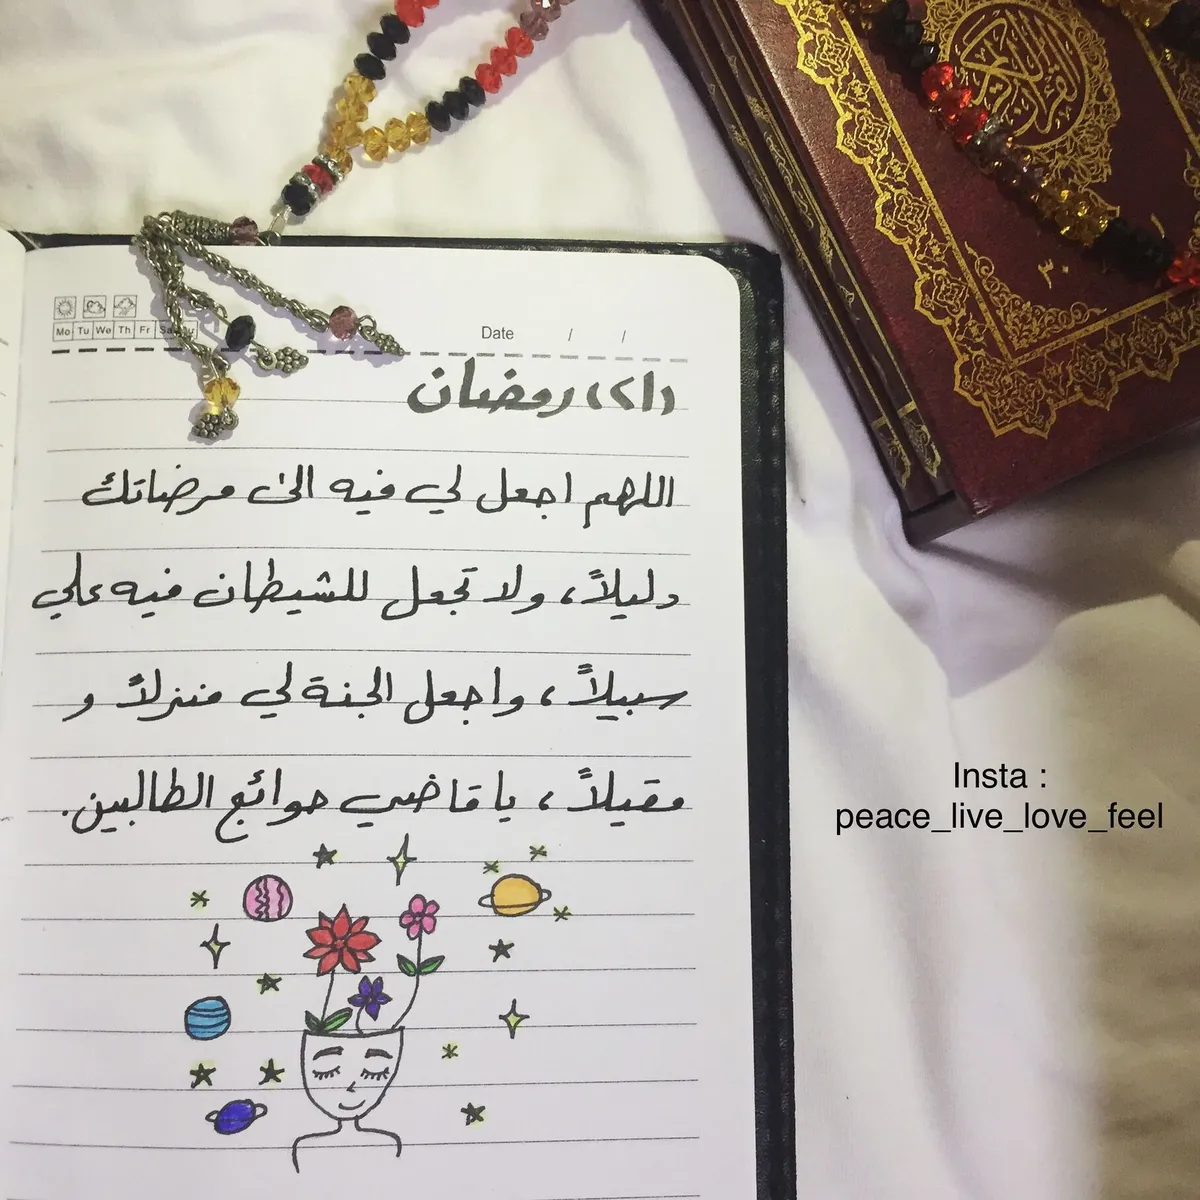 Mo Tu We Th Fr Sa Su
Date / /
(٢١) رمضان
اللهم اجعل لي فيه الى مرضاتك
دليلاً، ولا تجعل للشيطان فيه علي
سبيلاً، واجعل الجنة لي منزلاً و
مقيلاً، يا قاضي حوائج الطالبين.
القرآن الكريم
٣٠
Insta :
peace_live_love_feel